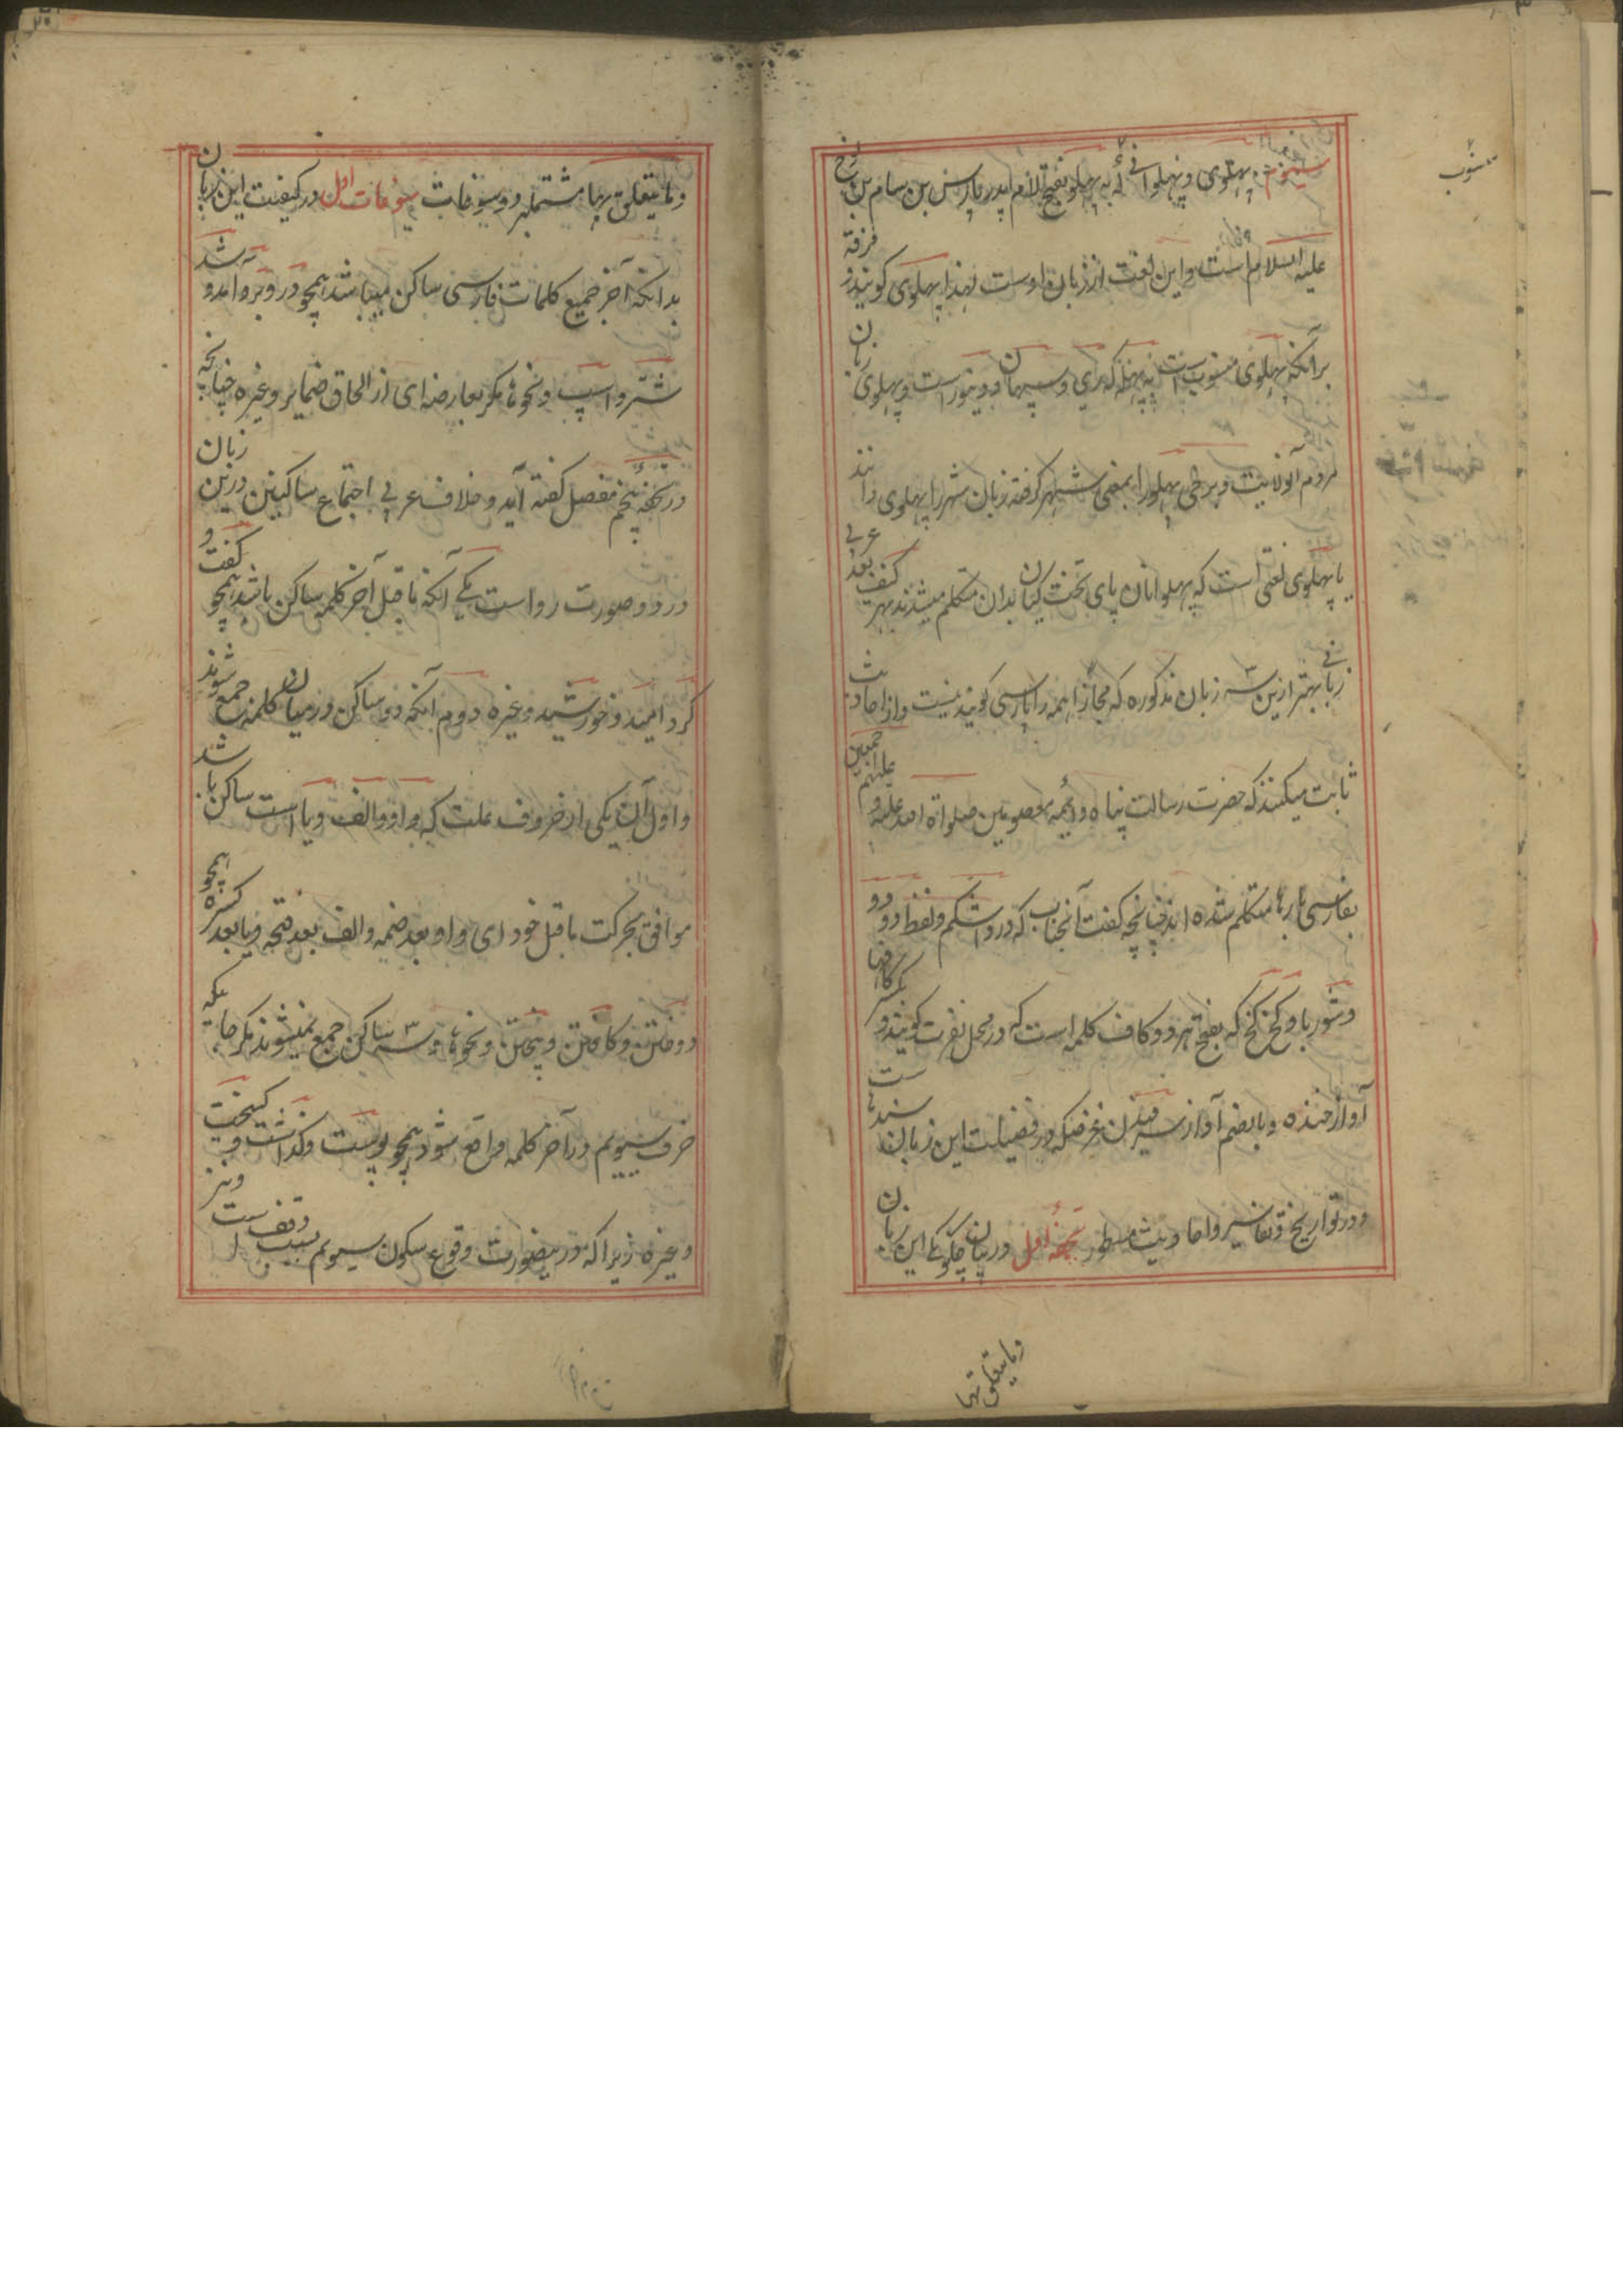 سیوم پهلوی و پهلوانی که به پهلو بفتح لام پدر پارس بن سام بن نوح
علیه السلام است و این لغت از زبان اوست لهذا پهلوی کویند و فرقه
برآنکه پهلوی منسوب است به پهله که ری و سپهان و دینور است و پهلوی زبان
مردم آنولایت و برخی پهلو را بمعنی شهر کرفته زبان شهر را پهلوی دانند
یا پهلوی لغتی است که پهلوانان پای تخت کیان بدان متکلم میشدند بعد عربی
زبانی بهتر ازین سه زبان مذکوره که مجازا همه را پارسی کویند نیست و از احادیث
ثابت میکنند که حضرت رسالت پناه و ائمه معصومین صلواة الله علیه و علیهم اجمعین
بفارسی بارها متکلم شده اند چنانچه کفت آنجناب که درد اشکم و لفظ دو دو
و شوربا و کخ کخ که بفتح هر دو کاف کلمه است که در محل نفرت کویند و بکسر کافها
آواز خنده و بالضم آواز سرفیدن غرضکه در فضیلت این زبان سندهاست
و در تواریخ و تفاسیر و احادیث مسطور تحفه اول در بیان چکونکی این زبان
وما یتعلق بها
منسوب
وما یتعلق بها مشتملبر دو سوغات سوغات اول در کیفیت این زبان
بدانکه آخر جمیع کلمات فارسی ساکن میباشد همچو در و بر و آمد و شد
شتر و اسپ و نحوها مکر بعارضه ای از الحاق ضمایر و غیره چنانچه
در تحفه پنجم مفصل کفته آید و خلاف عربی اجتماع ساکنین درین زبان
در دو صورت رواست یکی آنکه ماقبل آخر کلمه ساکن باشد همچو کفت و
کرد امید و خورشید و غیره دوم آنکه دو ساکن در میان کلمه جمع شوند
و اول آن یکی از حروف علت که واو و الف و یا است ساکن باشد
موافق بحرکت ماقبل خود ای واو بعد ضمه و الف بعد فتحه و یا بعد کسره همچو
دوختن و کافتن و بیختن و نحوها و سه ساکن جمع نمیشوند مکر جائیکه
حرف سیوم در آخر کلمه واقع شود همچو پوست و کذاشت و کیخت
و غیره زیرا که درینصورت وقوع سکون سیوم بسبب وقف است و نیز